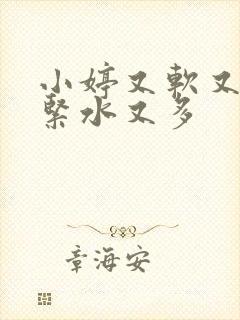 小婷又軟又
緊水又多
章海安